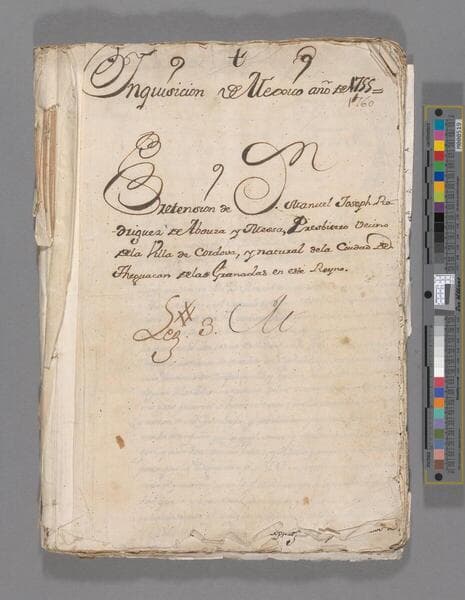 Inquisicion de Mexico año de 1755=
1760
Pretension de D. Manuel Joseph Ro-
driguez de y Presbitero Vecino
de la Villa de Cordova, y natural de la Ciudad de
Thequacan de las Granadas en este Reyno.
Leg. 3.